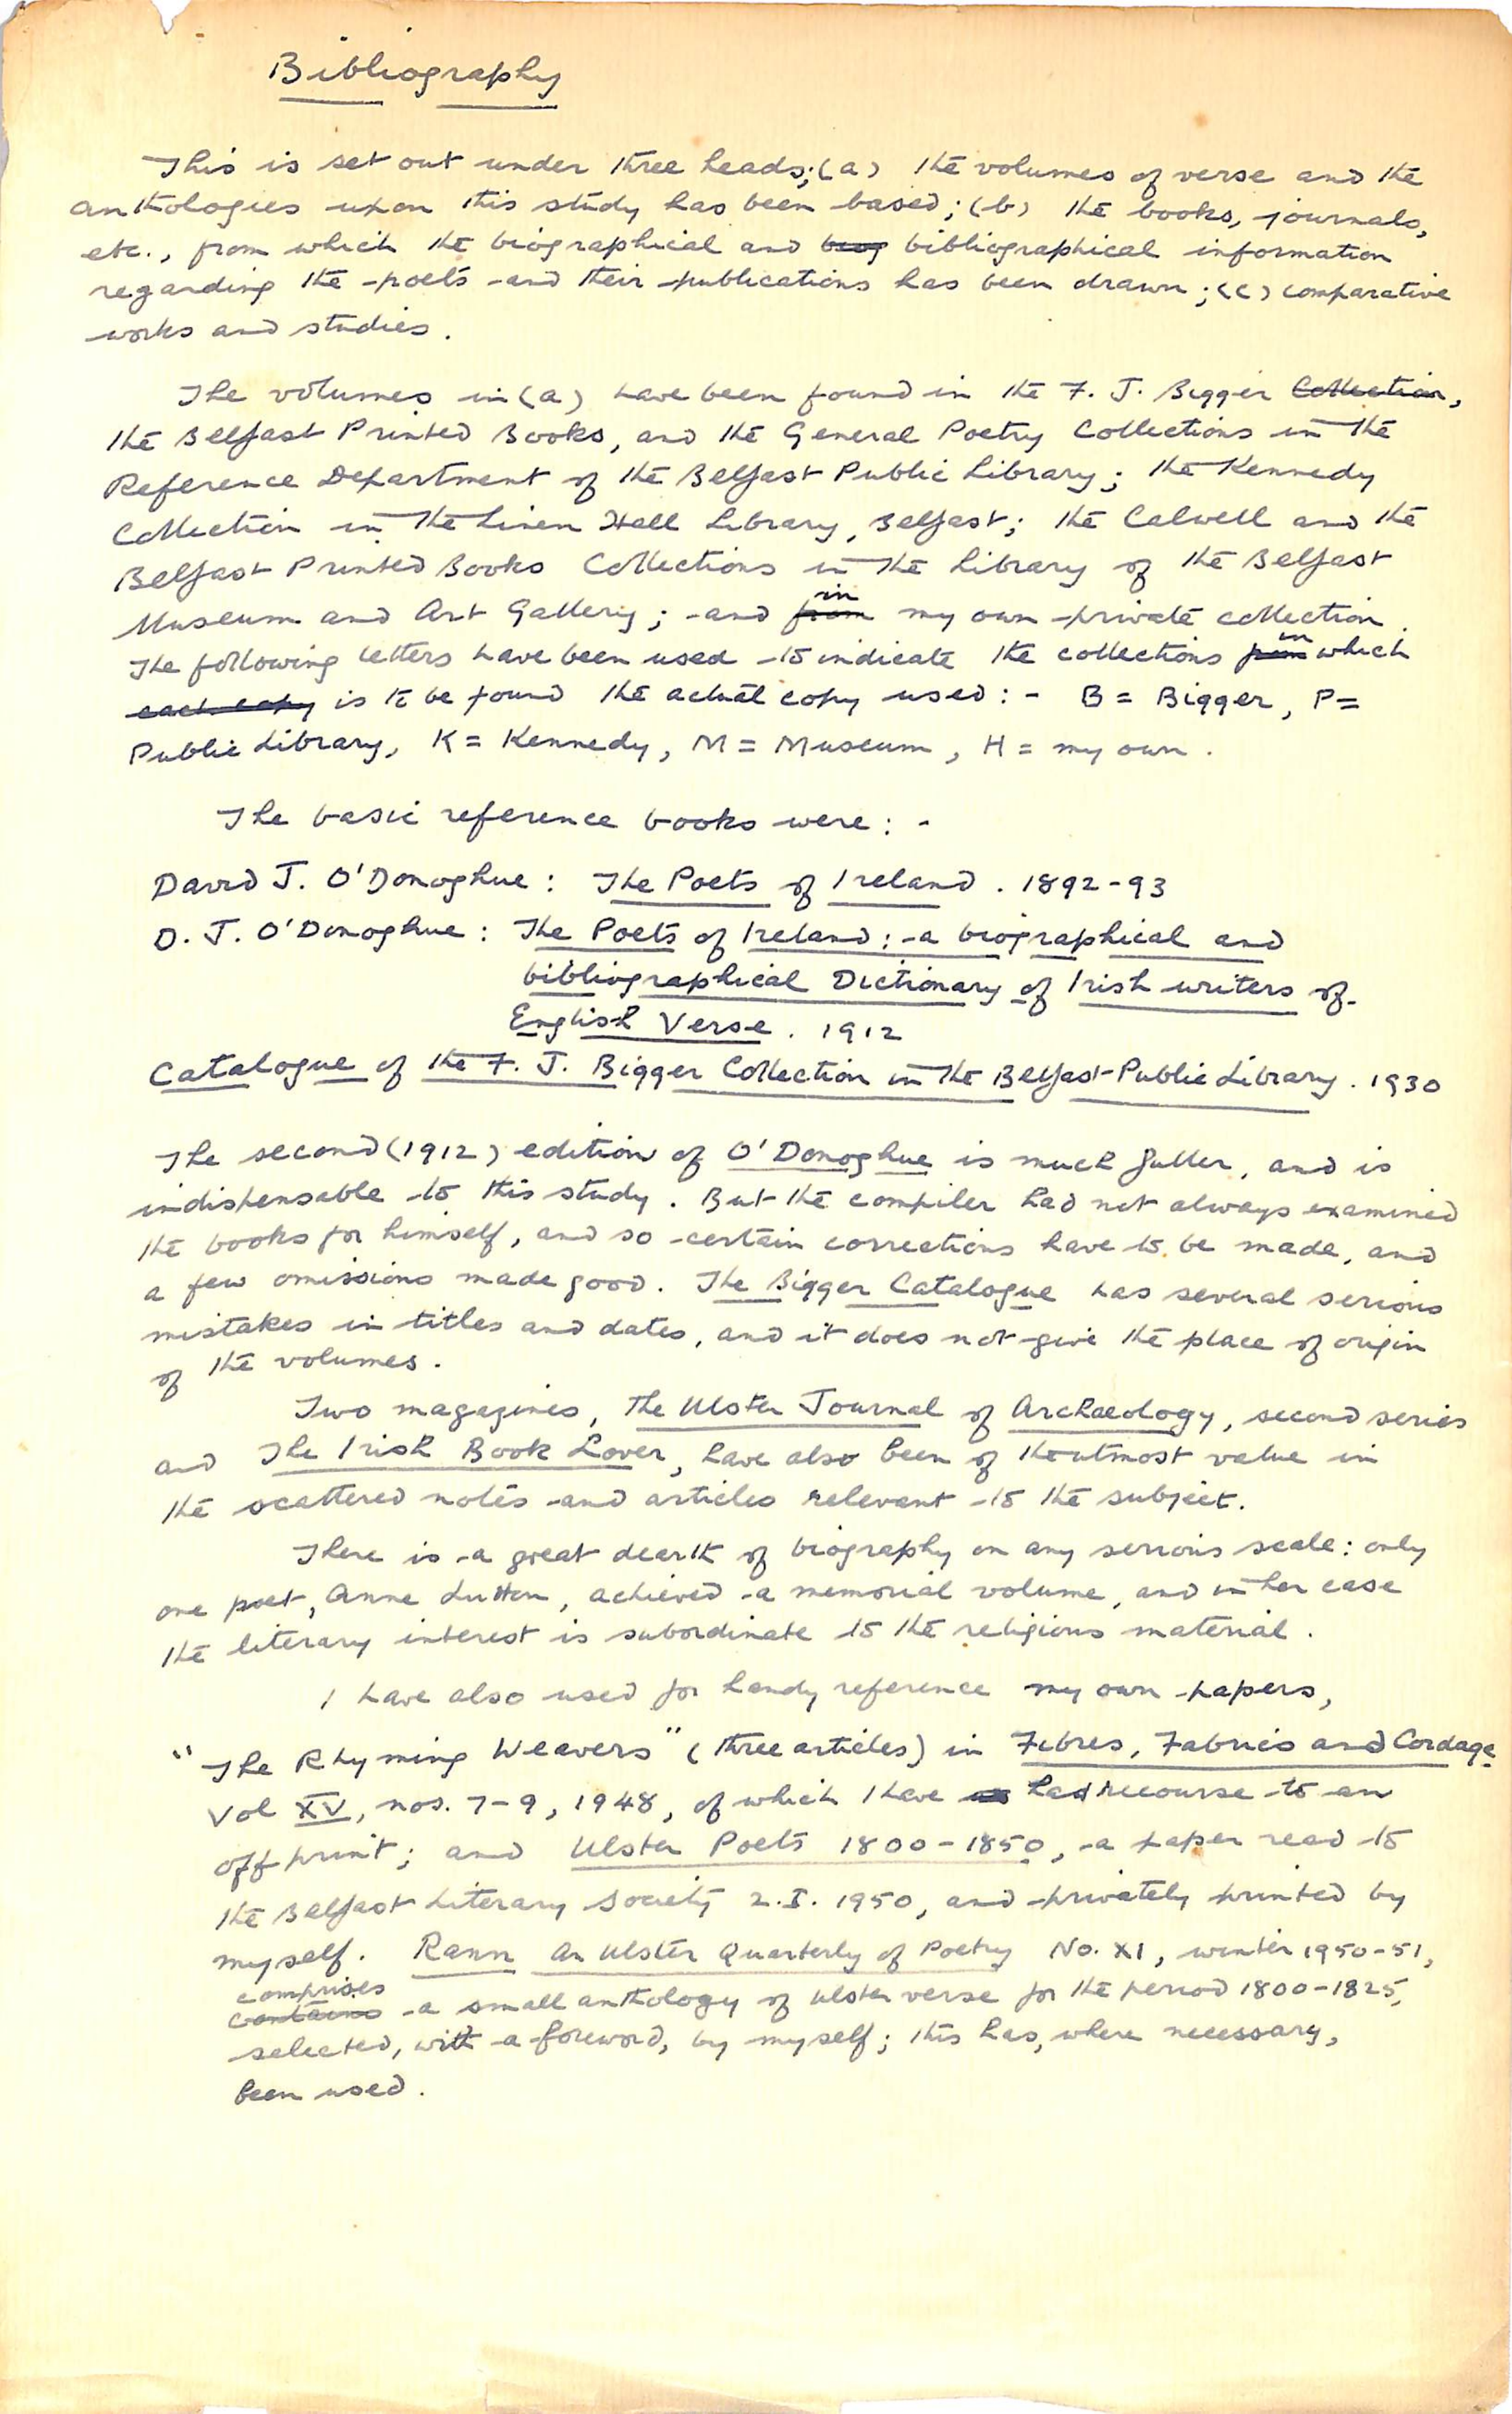 Bibliography
This is set out under three heads; (a) the volumes of verse and the
anthologies upon this study has been based; (b) the books, journals,
etc., from which the biographical and biog bibliographical information
regarding the poets and their publications has been drawn; (c) comparative
works and studies.
The volumes in (a) have been found in the F. J. Bigger Collection,
the Belfast Printed Books, and the General Poetry Collections in the
Reference Department of the Belfast Public Library; the Kennedy
Collection in the Linen Hall Library, Belfast; the Calwell and the
Belfast Printed Books Collections in the Library of the Belfast
in
Museum and Art Gallery; and from my own private collection.
in
The following letters have been used to indicate the collections from which
each copy is to be found the actual copy used: - B = Bigger, P =
Public Library, K = Kennedy, M = Museum, H = my own.
The basic reference books were: -
David J. O'Donoghue: The Poets of Ireland. 1892-93
D. J. O'Donoghue: The Poets of Ireland: a biographical and
bibliographical Dictionary of Irish writers of
English Verse. 1912
Catalogue of the F. J. Bigger Collection in the Belfast Public Library. 1930
The second (1912) edition of O'Donoghue is much fuller, and is
indispensable to this study. But the compiler had not always examined
the books for himself, and so certain corrections have to be made, and
a few omissions made good. The Bigger Catalogue has several serious
mistakes in titles and dates, and it does not give the place of origin
of the volumes.
Two magazines, the Ulster Journal of Archaeology, second series
and The Irish Book Lover, have also been of the utmost value in
the scattered notes and articles relevant to the subject.
There is a great dearth of biography on any serious scale: only
one poet, Anne Lutton, achieved a memorial volume, and in her case
the literary interest is subordinate to the religious material.
I have also used for handy reference my own papers,
"The Rhyming Weavers" (three articles) in Fibres, Fabrics and Cordage
Vol XV, nos. 7-9, 1948, of which I have had recourse to an
offprint; and Ulster Poets 1800-1850, a paper read to
the Belfast Literary Society 2.I.1950, and privately printed by
myself. Rann An Ulster Quarterly of Poetry No. XI, winter 1950-51,
comprises
contains a small anthology of Ulster verse for the period 1800-1825,
selected, with a foreword, by myself; this has, where necessary,
been used.